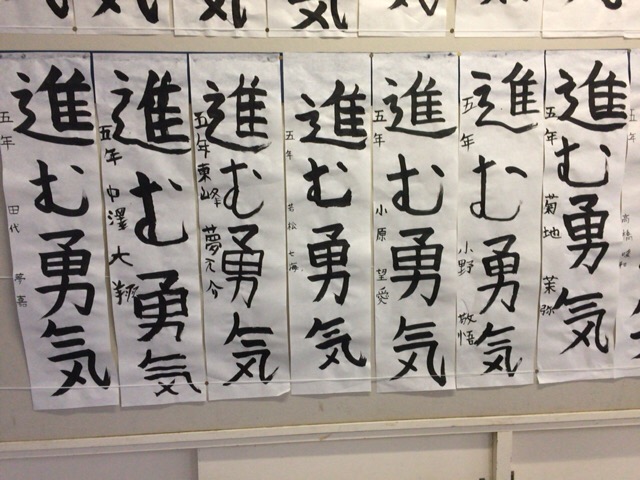 進む勇気
五年 菊地 茉弥
進む勇気
五年 小野 敬悟
進む勇気
五年 小原 望愛
進む勇気
五年 若松 七海
進む勇気
五年 東峰 夢
進む勇気
五年 中澤 大翔
進む勇気
五年 田代 夢嘉